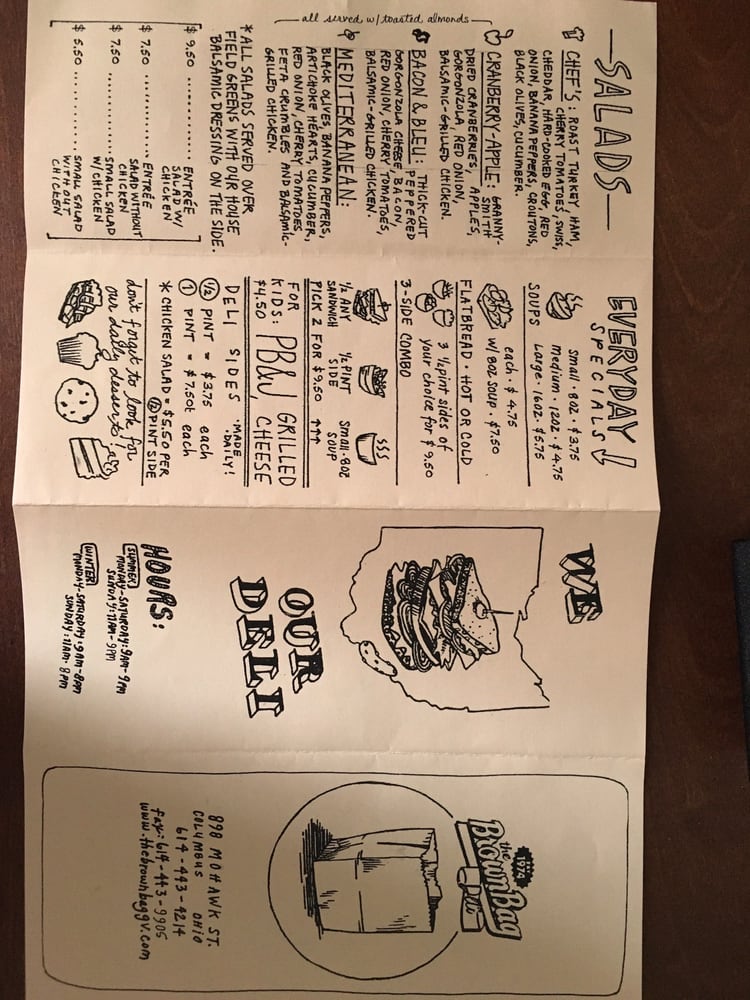 —SALADS—
CHEF'S: ROAST TURKEY, HAM,
CHERRY TOMATOES, SWISS,
CHEDDAR, HARD-COOKED EGG, RED
ONION, BANANA PEPPERS, CROUTONS,
BLACK OLIVES, CUCUMBER.
CRANBERRY-APPLE: GRANNY-
SMITH
APPLES,
DRIED CRANBERRIES,
GORGONZOLA, RED ONION,
BALSAMIC-GRILLED CHICKEN.
BACON & BLEU: THICK-CUT
PEPPERED
BACON,
GORGONZOLA CHEESE,
RED ONION, CHERRY TOMATOES,
BALSAMIC-GRILLED CHICKEN.
MEDITERRANEAN:
BLACK OLIVES, BANANA PEPPERS,
ARTICHOKE HEARTS, CUCUMBER,
RED ONION, CHERRY TOMATOES
FETA CRUMBLES AND BALSAMIC-
GRILLED CHICKEN.
all served w/ toasted almonds
*ALL SALADS SERVED OVER
FIELD GREENS WITH OUR HOUSE
BALSAMIC DRESSING ON THE SIDE.
$9.50 .......... ENTRÉE
SALAD W/
CHICKEN
$7.50 .......... ENTRÉE
SALAD WITHOUT
CHICKEN
$7.50 .......... SMALL SALAD
W/CHICKEN
$5.50 .......... SMALL SALAD
WITHOUT
CHICKEN
EVERYDAY
SPECIALS
SOUPS
Small · 8oz · $3.75
medium · 12oz · $4.75
Large · 16oz · $5.75
each · $4.75
w/ 8oz SOUP · $7.50
FLATBREAD · HOT OR COLD
3 ½pint sides of
your choice for $9.50
3-SIDE COMBO
½ ANY
SANDWICH
½ PINT
SIDE
Small · 8oz
SOUP
PICK 2 FOR $9.50 ↑↑↑
FOR
KIDS: PB&J, GRILLED
CHEESE
$4.50
DELI SIDES · MADE
· DAILY!
½ PINT = $3.75 each
1 PINT = $7.50 each
* CHICKEN SALAD = $5.50 PER
½ PINT SIDE
don't forget to look for
our daily desserts
WE
OUR
DELI
HOURS:
SUMMER
MONDAY-SATURDAY: 9AM-9PM
SUNDAY: 11AM-9PM
WINTER
MONDAY-SATURDAY: 9AM-8PM
SUNDAY: 11AM-8PM
1974
the
Brown Bag
Deli
898 MOHAWK ST.
COLUMBUS OHIO
614-443-4214
fax: 614-443-9905
www.thebrownbaggv.com